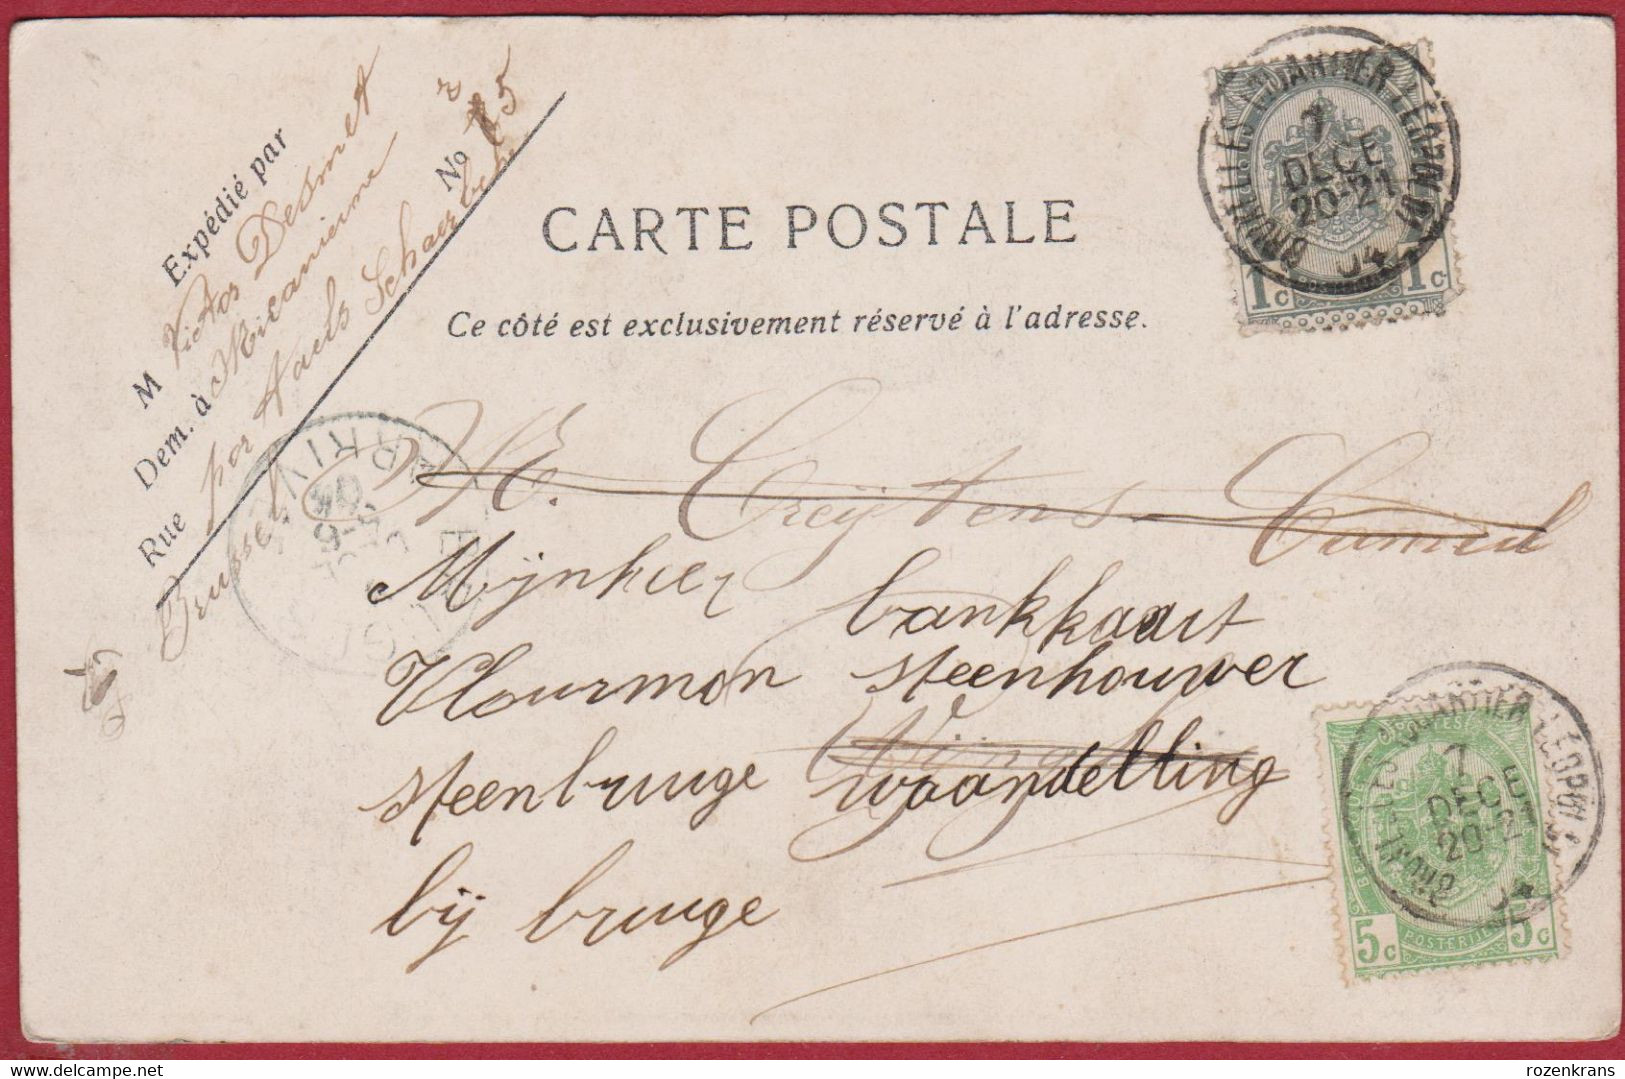 Expédié par
M Victor Desmet
Dem. à Micanienne
Rue por Hauls Schaerbeek No 75
Brussel
CARTE POSTALE
Ce côté est exclusivement réservé à l'adresse.
BRUXELLES (QUARTIER LÉOPOLD)
7
DECE
20-21
04
1c 1c
M E. Creÿtens Camiel
Mijnheer bankkaart
Vlourmon steenhouwer
steenbrugge waandelling
bij brugge
ARRIVÉE
BRUXELLES (QUARTIER LÉOPOLD)
7
DECE
20-21
04
POSTERIJEN
5c 5c
rozenkrans